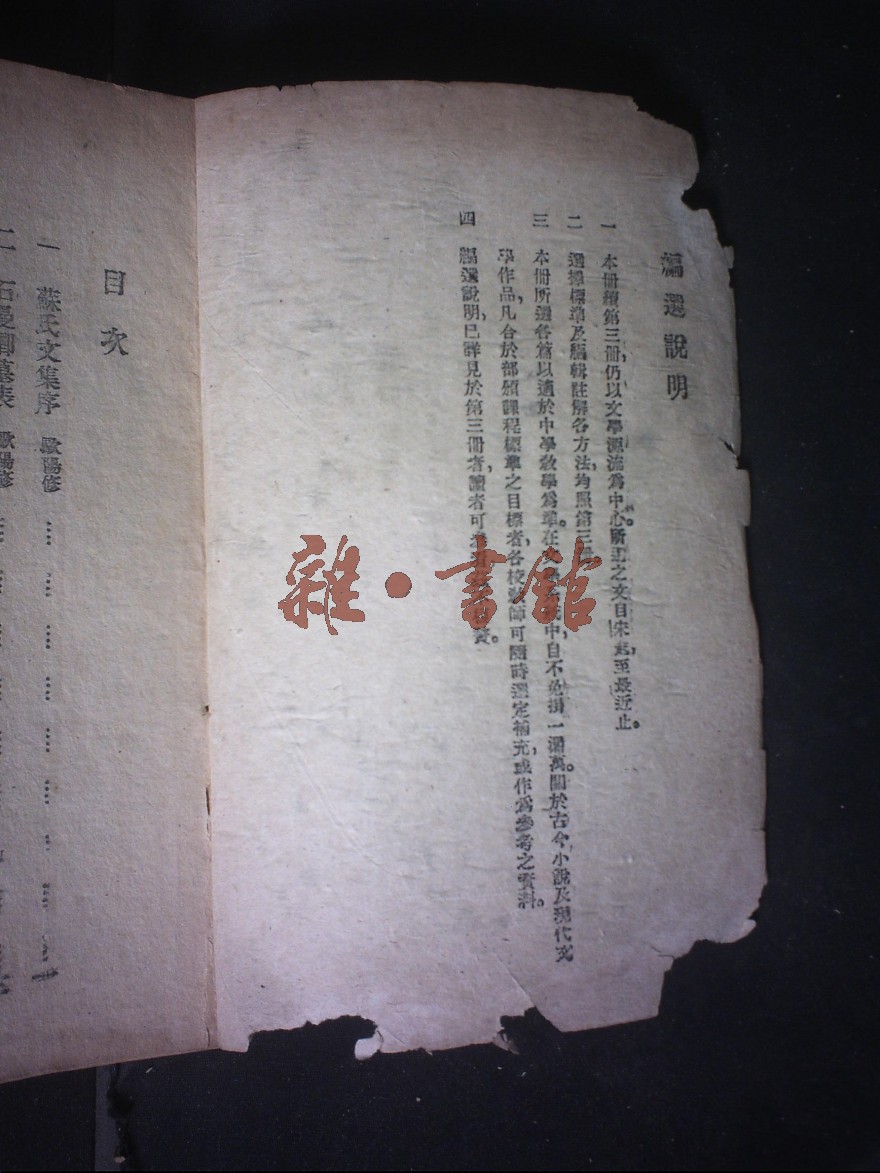 編選說明
一 本冊續第三冊,仍以文學源流爲中心。所選之文目宋起,至最近止。
二 選擇標準及編輯註解各方法,均照第三
三 本冊所選各篇以適於中學敎學爲準。在中,自不免掛一漏萬。關於古今小說及現代文
學作品,凡合於部頒課程標準之目標者,各校敎師可隨時選定補充,或作爲參考之資料。
四 編選說明,已詳見於第三冊者,讀者可
雜·書館
目次
一 蘇氏文集序 歐陽修
二 石曼卿墓表 歐陽修